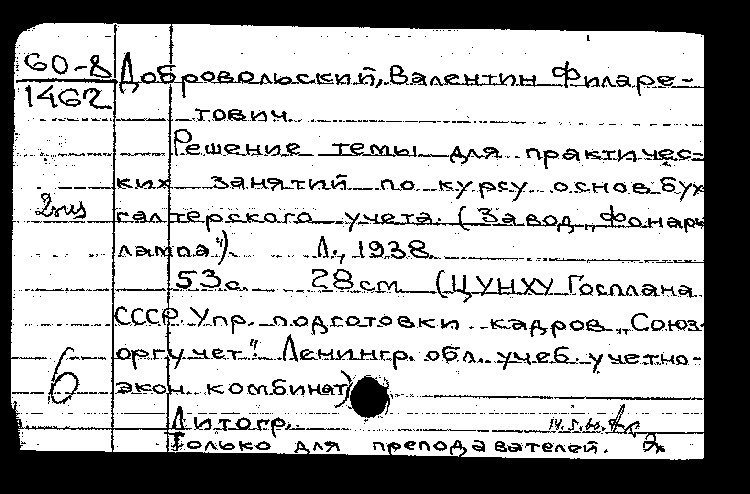 60-8
1462
Добровольский, Валентин Филаре-
тович
Решение темы для практичес-
ких занятий по курсу основ бух
галтерского учета. (Завод „Фонарь
лампа"). Л., 1938.
53с. 28см (ЦУНХУ Госплана
СССР. Упр. подготовки кадров „Союз-
оргучет". Ленингр. обл. учеб. учетно-
экон. комбинат)
6
Литогр.
Только для преподавателей. 2х